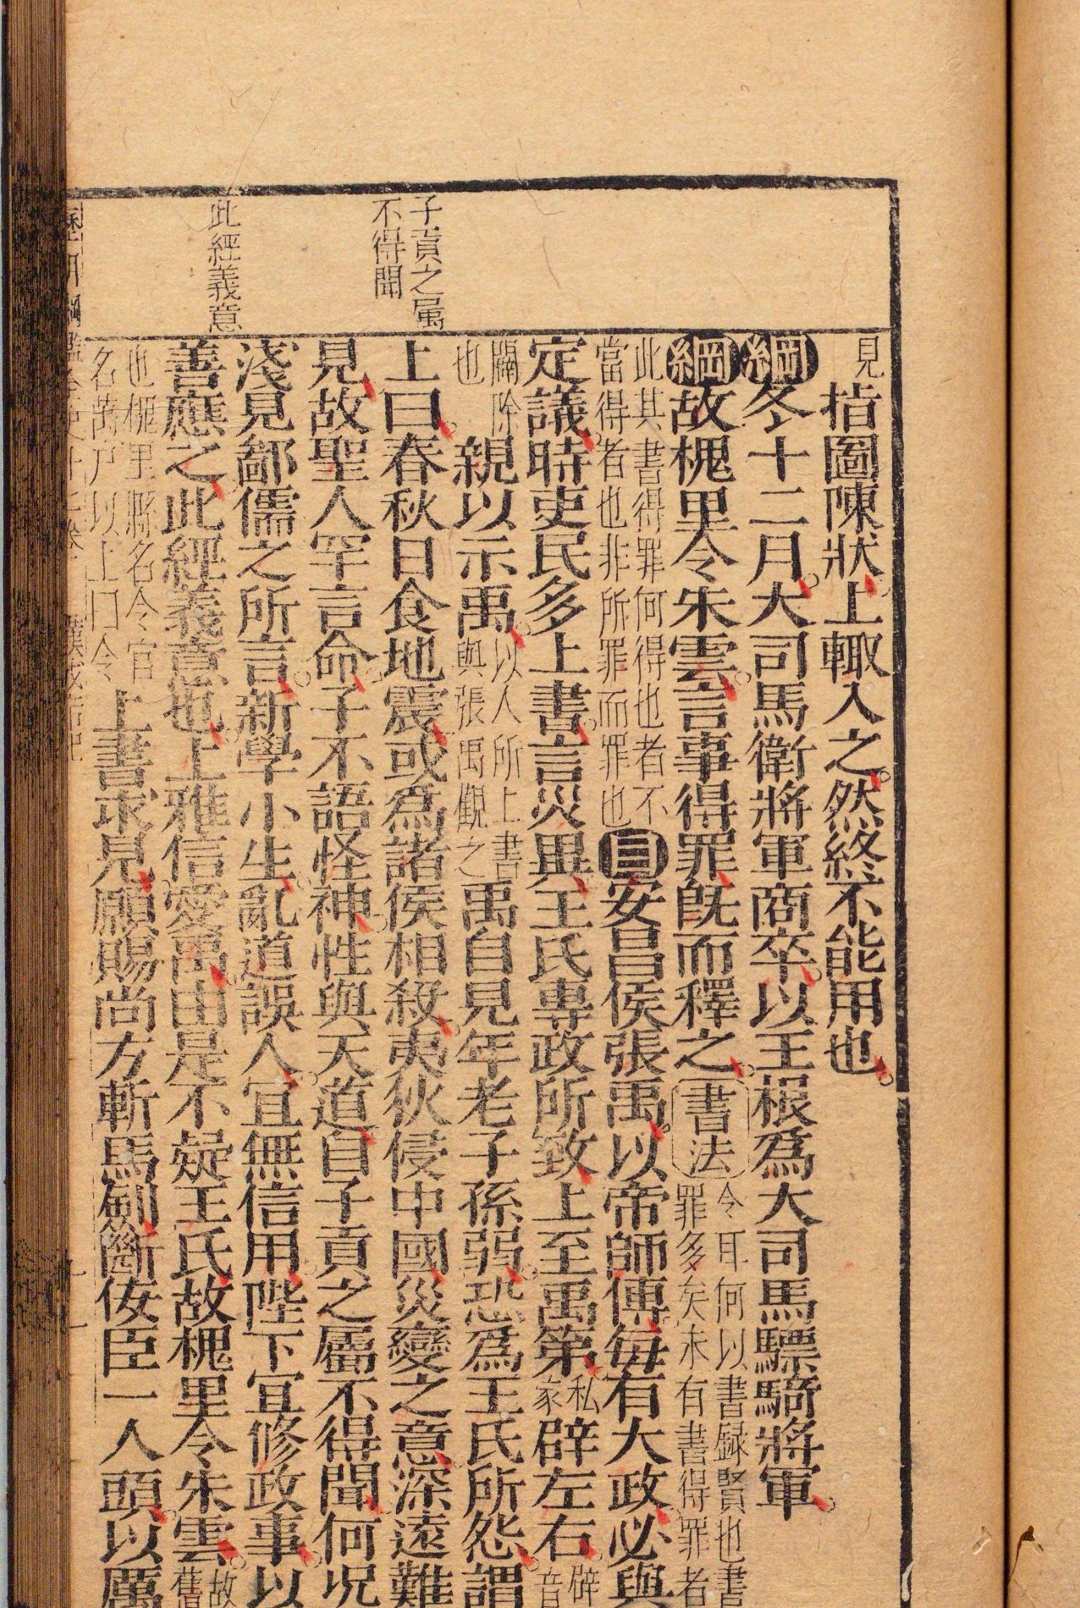 子貢之屬
不得聞
此經義意
見
指圖陳狀上輙入之然終不能用也
綱冬十二月大司馬衛將軍商卒以王根爲大司馬驃騎將軍
綱故槐里令朱雲言事得罪旣而釋之書法
令耳何以書録賢也書
罪多矣未有書得罪者
此其書得罪何得也者不
當得者也非所罪而罪也
目安昌侯張禹以帝師傅每有大政必與
定議時吏民多上書言災異王氏專政所致上至禹第
私
家
辟左右
辟
音
闢除
也
親以示禹
以人所上書
與張禹觀之
禹自見年老子孫弱恐爲王氏所怨謂
上曰春秋日食地震或爲諸侯相殺夷狄侵中國災變之意深遠難
見故聖人罕言命子不語怪神性與天道自子貢之屬不得聞何況
淺見鄙儒之所言新學小生亂道誤人宜無信用陛下宜修政事以
善應之此經義意也上雅信愛禹由是不疑王氏故槐里令朱雲
故
舊
也槐里縣名令官
名萬戶以上曰令
上書求見願賜尚方斬馬劍斷佞臣一人頭以厲